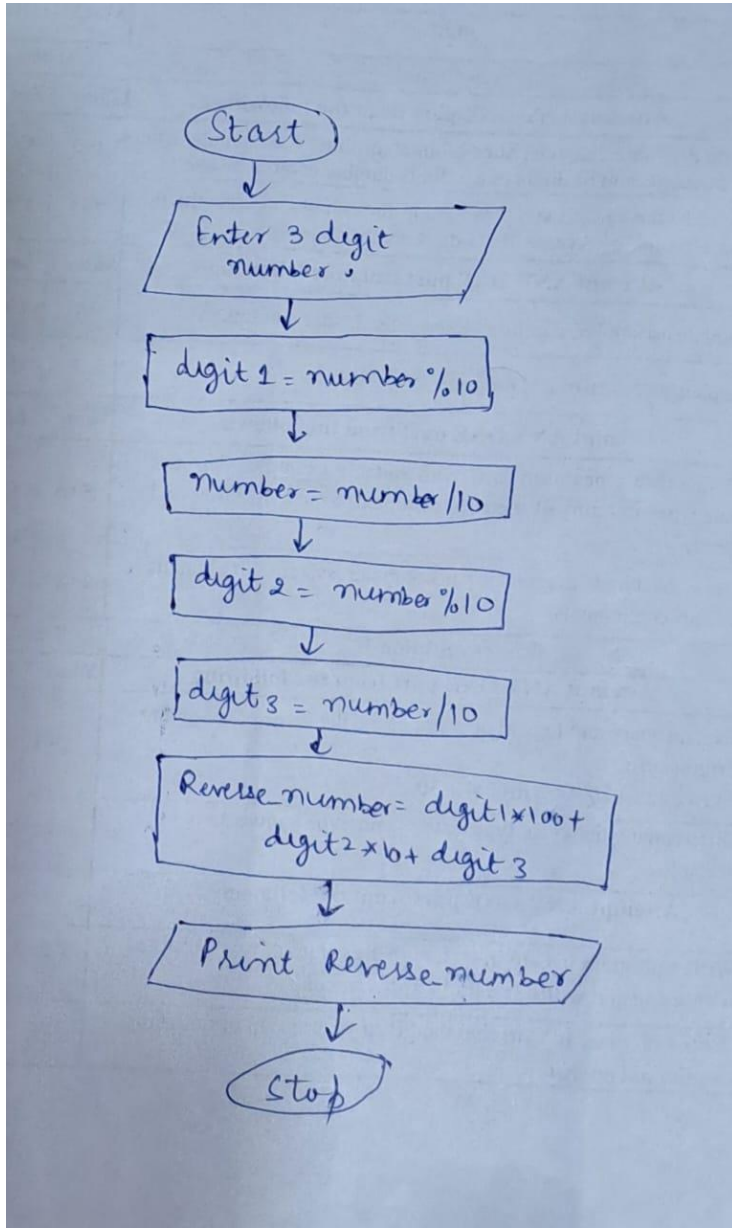 Start
Enter 3 digit
number.
digit 1 = number % 10
number = number/10
digit 2 = number % 10
digit 3 = number/10
Reverse_number = digit1*100+
digit2*10+ digit 3
Print Reverse_number
Stop